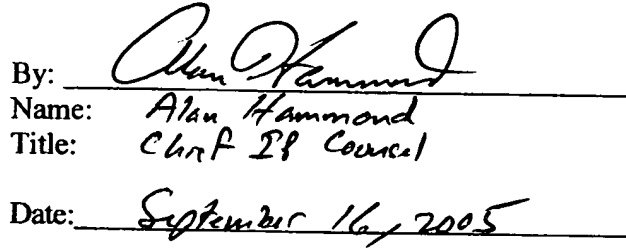 By: Alan Hammond
Name: Alan Hammond
Title: Chief IP Counsel
Date: September 16, 2005